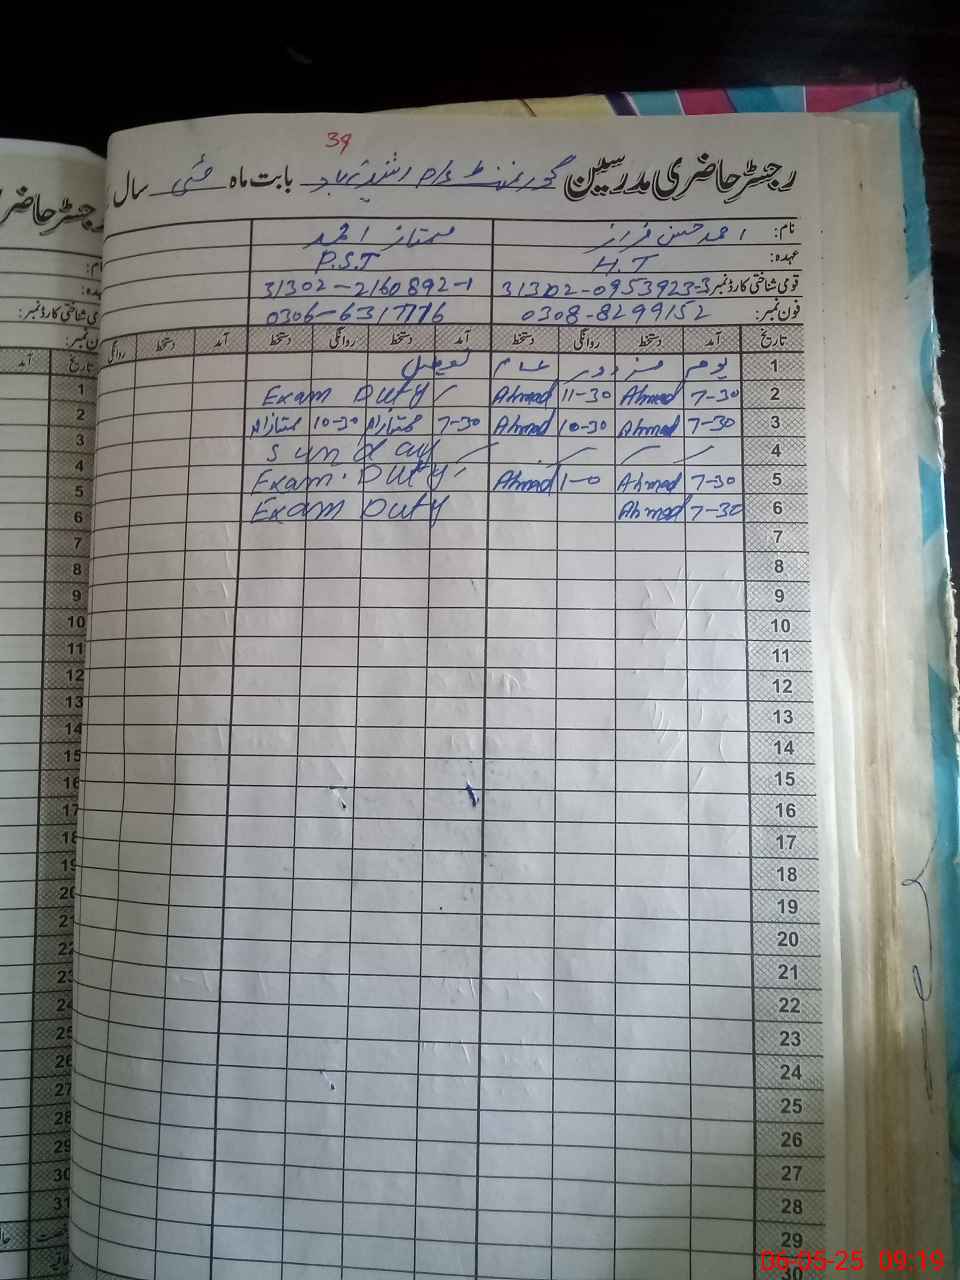 39
رجسٹر حاضری مدرسین گورنمنٹ P/S رشید آباد بابت ماہ مئی سال
نام: احمد حسن فراز ممتاز احمد
عہدہ: H.T P.S.T
قومی شناختی کارڈ نمبر: 31302-0953923-3 31302-2160892-1
فون نمبر: 0308-8299152 0306-6317776
تاریخ آمد دستخط روانگی دستخط آمد دستخط روانگی دستخط آمد دستخط روانگی
1 یوم مزدور عام تعطیل
2 7-30 Ahmad 11-30 Ahmad Exam Duty
3 7-30 Ahmad 10-30 Ahmad 7-30 ممتاز احمد 10-30 ممتاز احمد
4 Sunday
5 7-30 Ahmad 1-0 Ahmad Exam Duty
6 7-30 Ahmad Exam Duty
7
8
9
10
11
12
13
14
15
16
17
18
19
20
21
22
23
24
25
26
27
28
29
30
رجسٹر حاضر
آمد
1
2
3
4
5
6
7
8
9
10
11
12
13
14
15
16
17
18
19
20
21
22
23
24
25
26
27
28
29
30
31
06-05-25 09:19